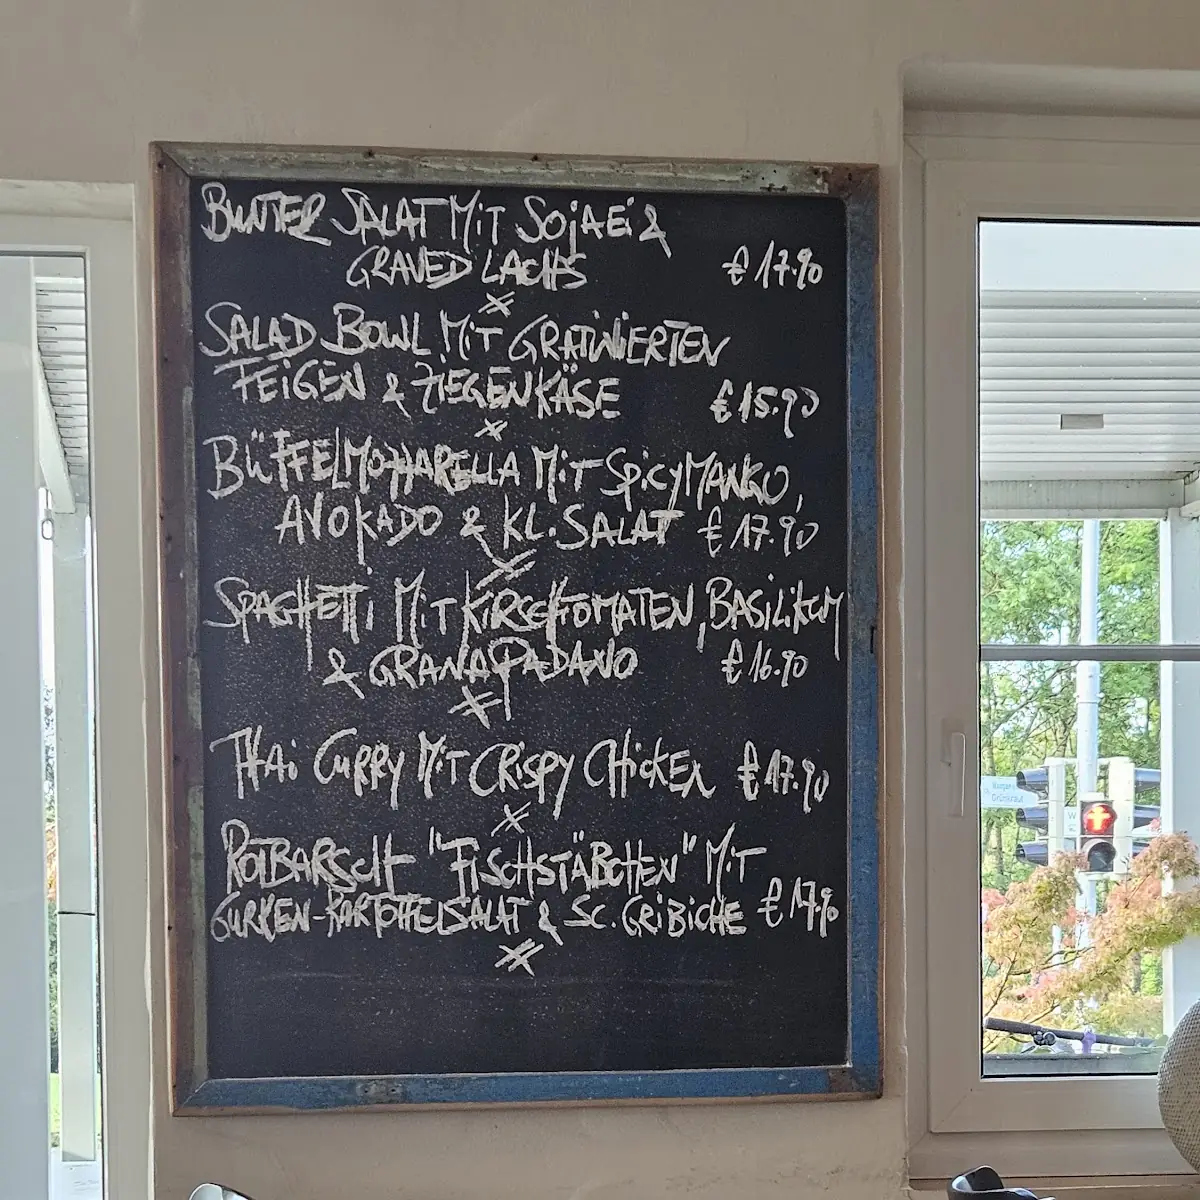 BUNTER SALAT MiT SOjAEi &
GRAVED LACHS € 17.90
SALAD BOWL MiT GRATiNiERTEN
FEiGEN & ZiEGENKÄSE € 15.90
BÜFFElMOZZARELLA MiT SpicyMANGO,
AVOKADO & KL. SALAT € 17.90
SPAGHETTi MiT KiRSCHTOMATEN, BASiLiKUM
& GRANA PADANO € 16.90
THAi CURRY MiT CRiSPY CHiCKEN € 17.90
ROTBARSCH "FiSCHSTÄBCHEN" MiT
GURKEN-KARTOFFElSALAT & SC. GRiBiCHE € 17.90